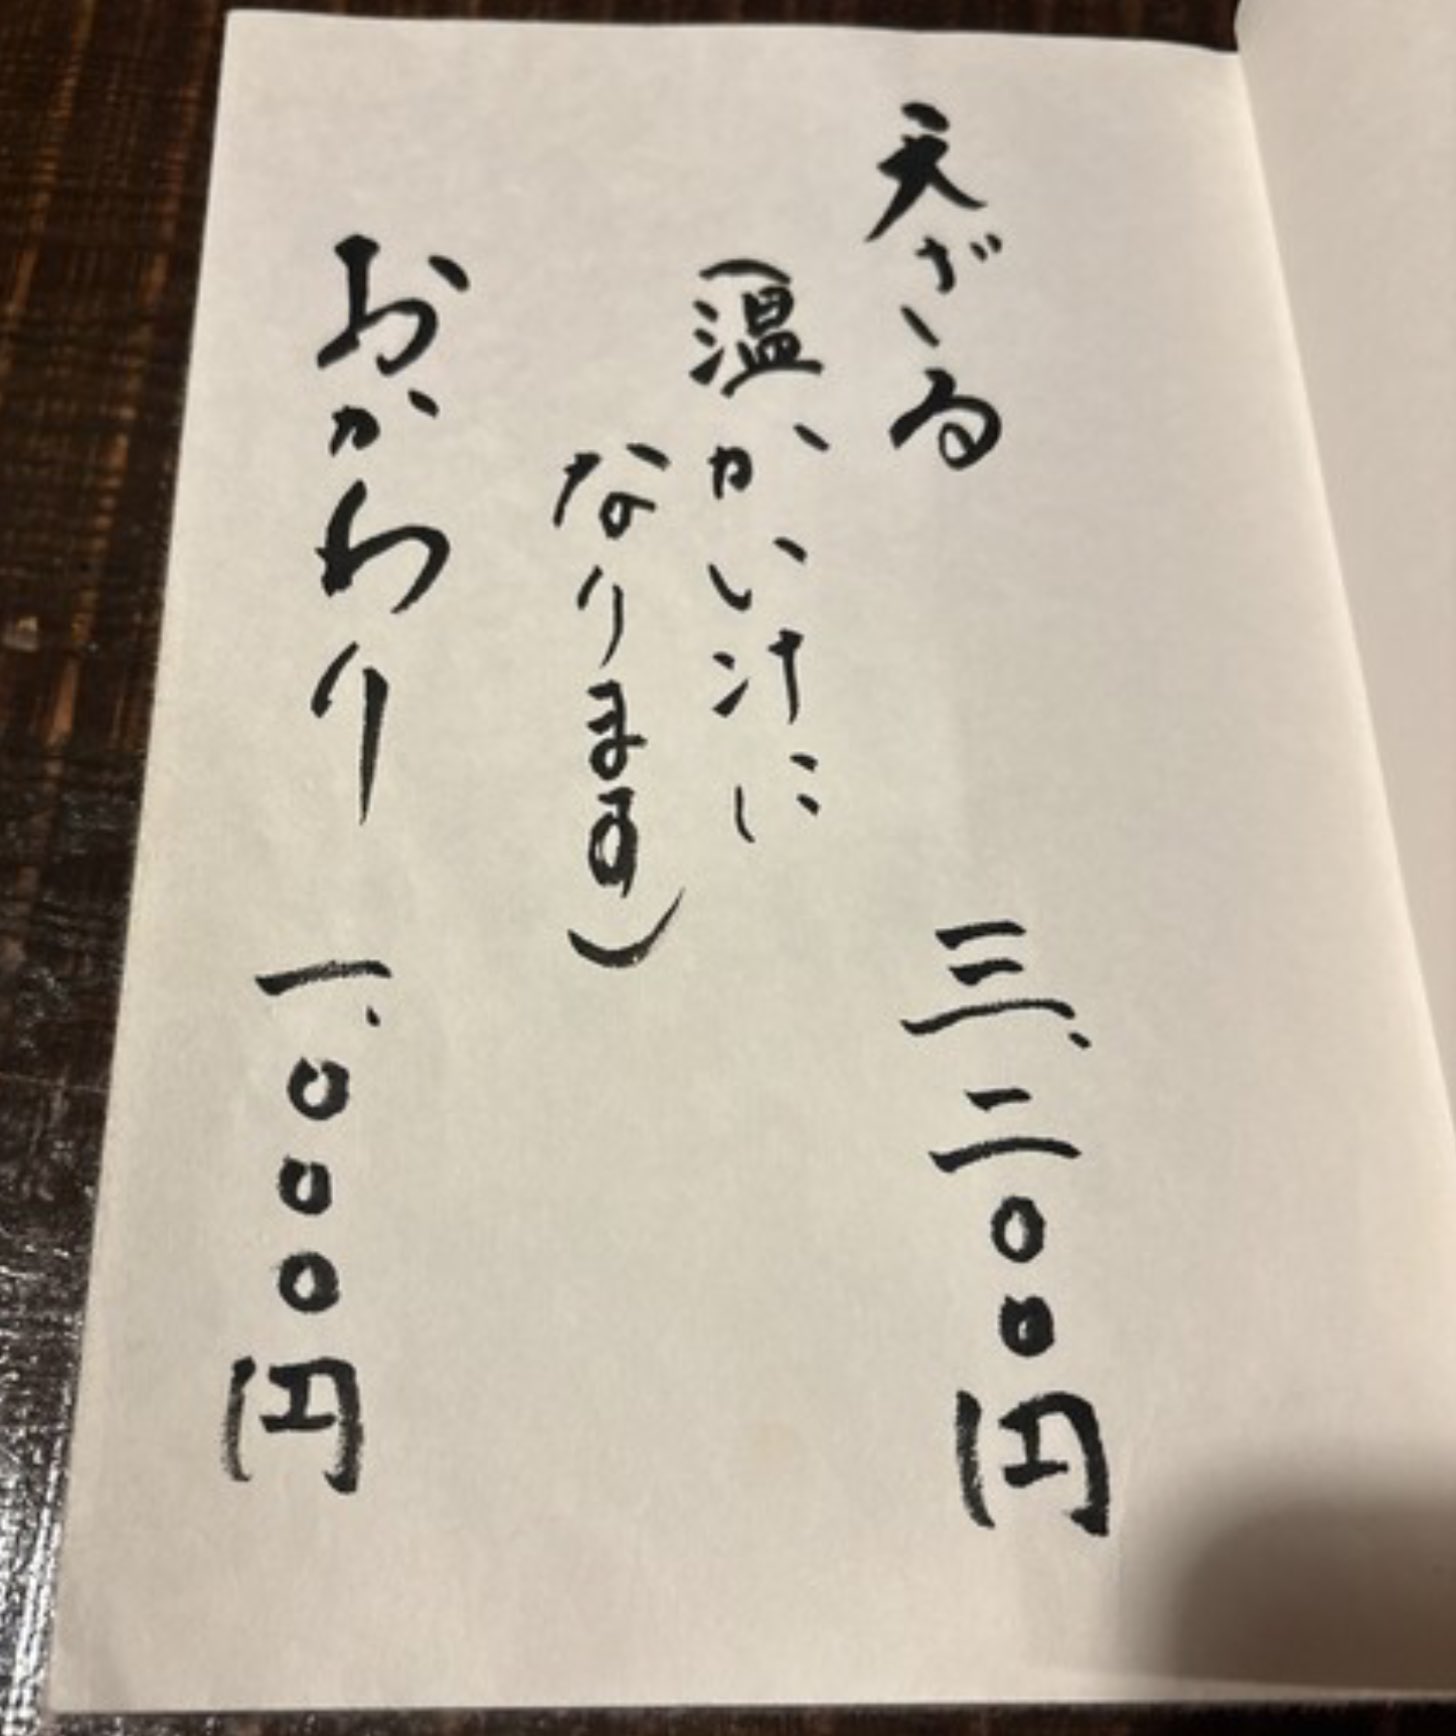 天ざる 三、二〇〇円
(温かい汁に
なります)
おかわり 一、〇〇〇円